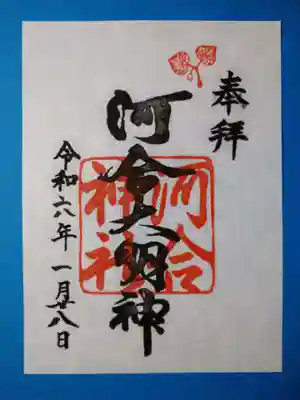 奉拝
河合大明神
河合
神社
令和六年一月廿八日